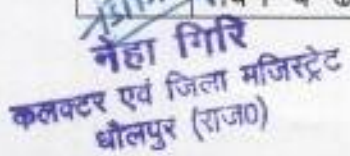 नेहा गिरि
कलक्टर एवं जिला मजिस्ट्रेट
धौलपुर (राज०)